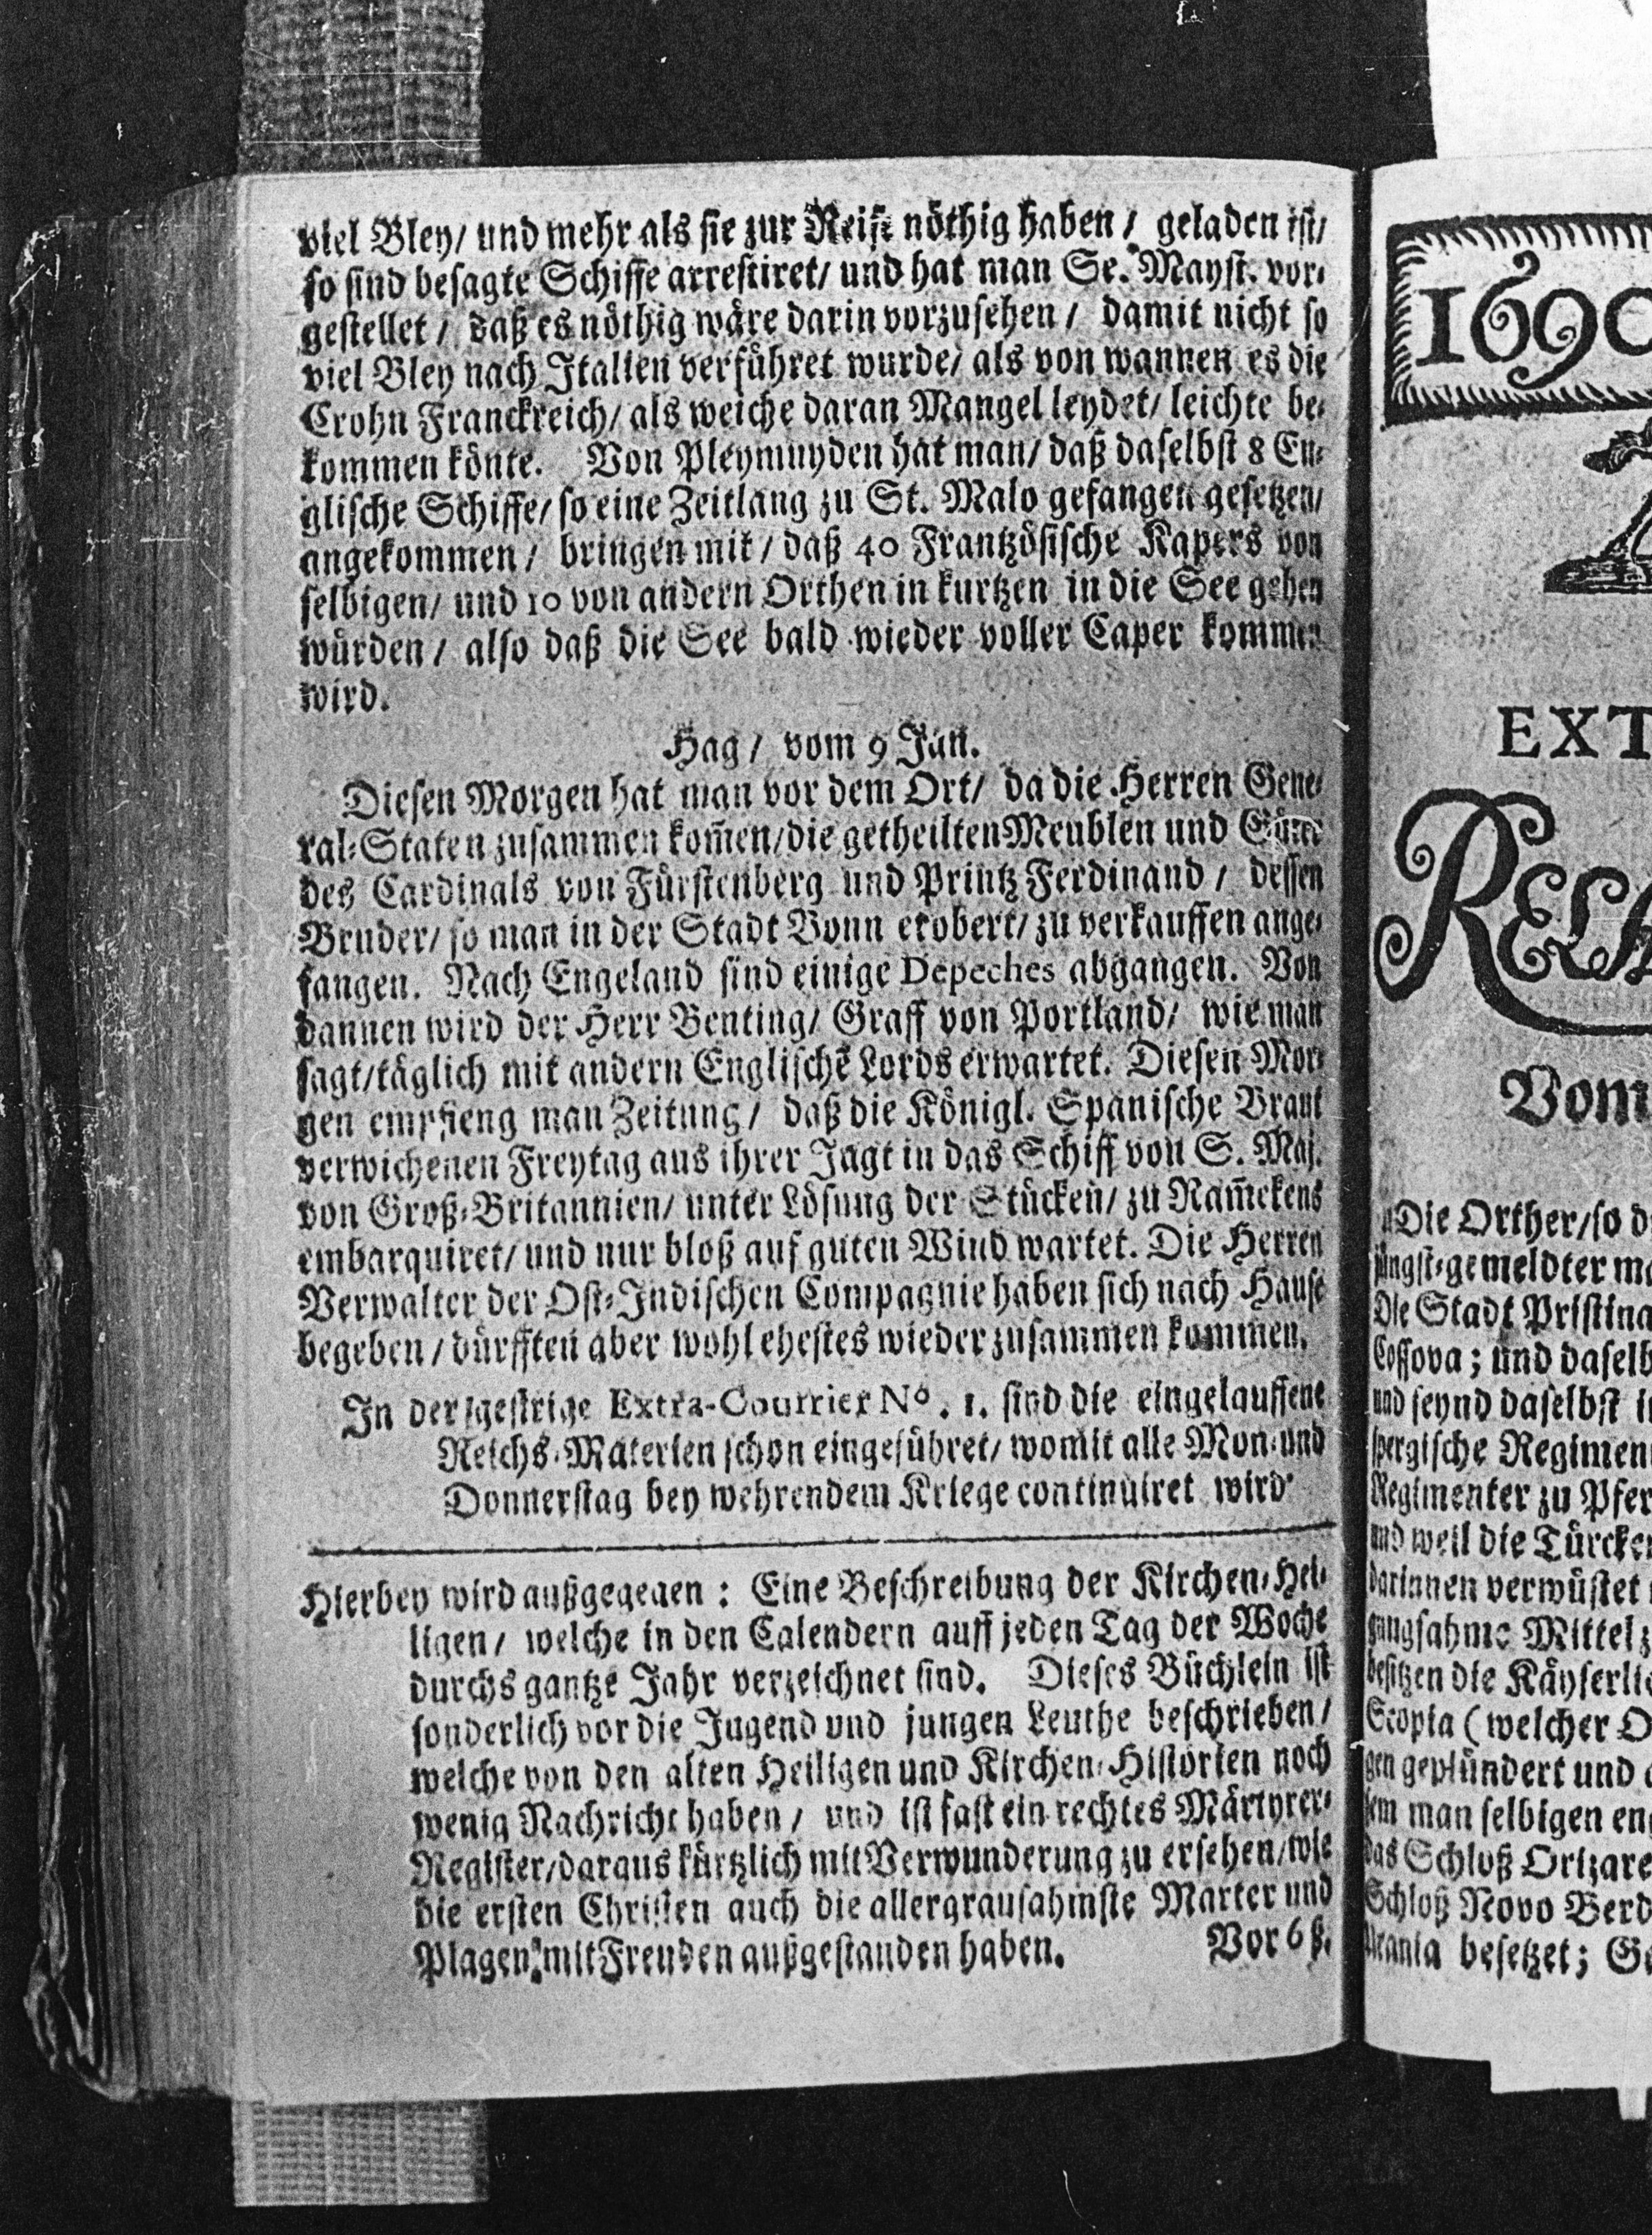 viel Bley/ und mehr als sie zur Reise nöthig haben / geladen ist/
so sind besagte Schiffe arrestiret/ und hat man Se. Mayst. vor-
gestellet / daß es nöthig wäre darin vorzusehen / damit nicht so
viel Bley nach Italien verführet wurde/ als von wannen es die
Crohn Franckreich/ als welche daran Mangel leydet/ leichte be-
kommen könte. Von Pleymuyden hat man/ daß daselbst 8 En-
glische Schiffe/ so eine Zeitlang zu St. Malo gefangen gesetzen/
angekommen / bringen mit / daß 40 Frantzösische Kapers von
selbigen/ und 10 von andern Orthen in kurtzen in die See gehen
würden / also daß die See bald wieder voller Caper kommen
wird.
Hag / vom 9 Jan.
Diesen Morgen hat man vor dem Ort/ da die Herren Gene-
ral-Staten zusammen kom̃en/die getheilten Meublen und Güter
des Cardinals von Fürstenberg und Printz Ferdinand / dessen
Bruder/ so man in der Stadt Bonn erobert/ zu verkauffen ange-
fangen. Nach Engeland sind einige Depeches abgangen. Von
dannen wird der Herr Benting/ Graff von Portland/ wie man
sagt/täglich mit andern Englischẽ Lords erwartet. Diesen Mor-
gen empfieng man Zeitung / daß die Königl. Spanische Braut
verwichenen Freytag aus ihrer Jagt in das Schiff von S. Maj.
von Groß-Britannien/ unter Lösung der Stücken/ zu Ram̃ekens
embarquiret/ und nur bloß auf guten Wind wartet. Die Herren
Verwalter der Ost-Indischen Compagnie haben sich nach Hause
begeben / dürfften aber wohl ehestes wieder zusammen kommen.
In der gestrige Extra-Courrier No. 1. sind die eingelauffene
Reichs-Materien schon eingeführet/ womit alle Mon- und
Donnerstag bey wehrendem Kriege continuiret wird
Hierbey wird außgegeaen : Eine Beschreibung der Kirchen-Hei-
ligen / welche in den Calendern auff jeden Tag der Woche
durchs gantze Jahr verzeichnet sind. Dieses Büchlein ist
sonderlich vor die Jugend und jungen Leuthe beschrieben /
welche von den alten Heiligen und Kirchen-Historien noch
wenig Nachricht haben / und ist fast ein rechtes Märtyrer-
Register/daraus kürtzlich mit Verwunderung zu ersehen/wie
die ersten Christen auch die allergrausahmste Marter und
Plagen mit Freuden außgestanden haben. Vor 6 ß.
1690
EXT
RELA
Vom
Die Orther/so d
jüngst-gemeldter ma
Die Stadt Pristina
Cossova ; und daselb
und seynd daselbst i
spergische Regimen
Regimenter zu Pfer
und weil die Türcken
darinnen verwüstet
gungsahme Mittel z
besitzen die Käyserlic
Scopia ( welcher O
gen geplündert und
dem man selbigen en
das Schloß Orizare
Schloß Novo Berd
besetzet ; Ge